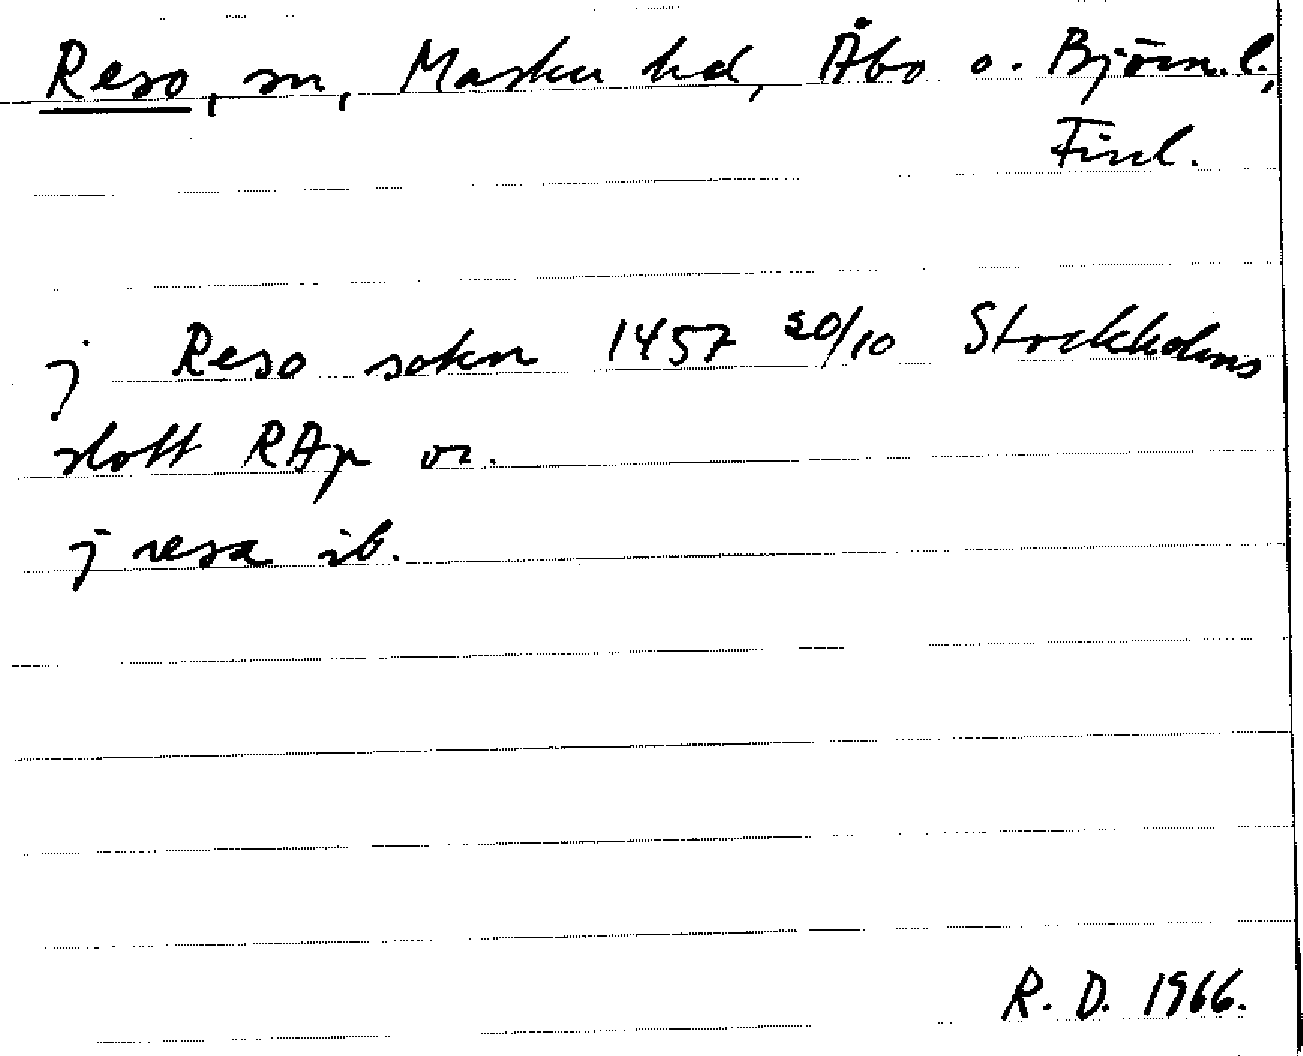 Reso, sn, Masku hd, Åbo o. Björn. l.,
Finl.
j Reso sokn 1457 20/10 Stockholms
slott RAp or.
j resa ib.
R. D. 1966.